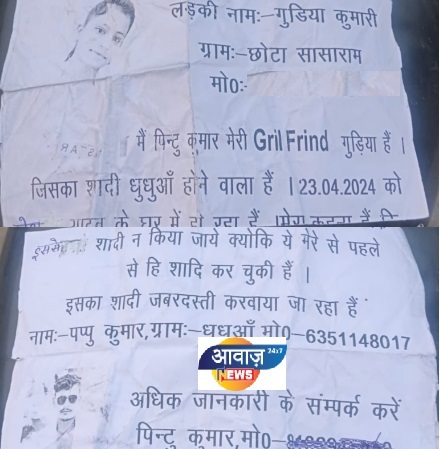 लड़की नाम:–गुडिया कुमारी
ग्राम:–छोटा सासाराम
मो0:-
मैं पिन्टु कुमार मेरी Gril Frind गुड़िया हैं ।
जिसका शादी धुधुआँ होने वाला हैं । 23.04.2024 को
के घर में हो रहा हैं मेरा कहना हैं कि
इससे शादी न किया जाये क्योकि ये मेरे से पहले
से हि शादि कर चुकी हैं ।
इसका शादी जबरदस्ती करवाया जा रहा हैं
नाम:–पप्पु कुमार,ग्राम:–धुधुआँ मो0–6351148017
आवाज़ 24x7
NEWS
अधिक जानकारी के संम्पर्क करें
पिन्टु कुमार,मो0–